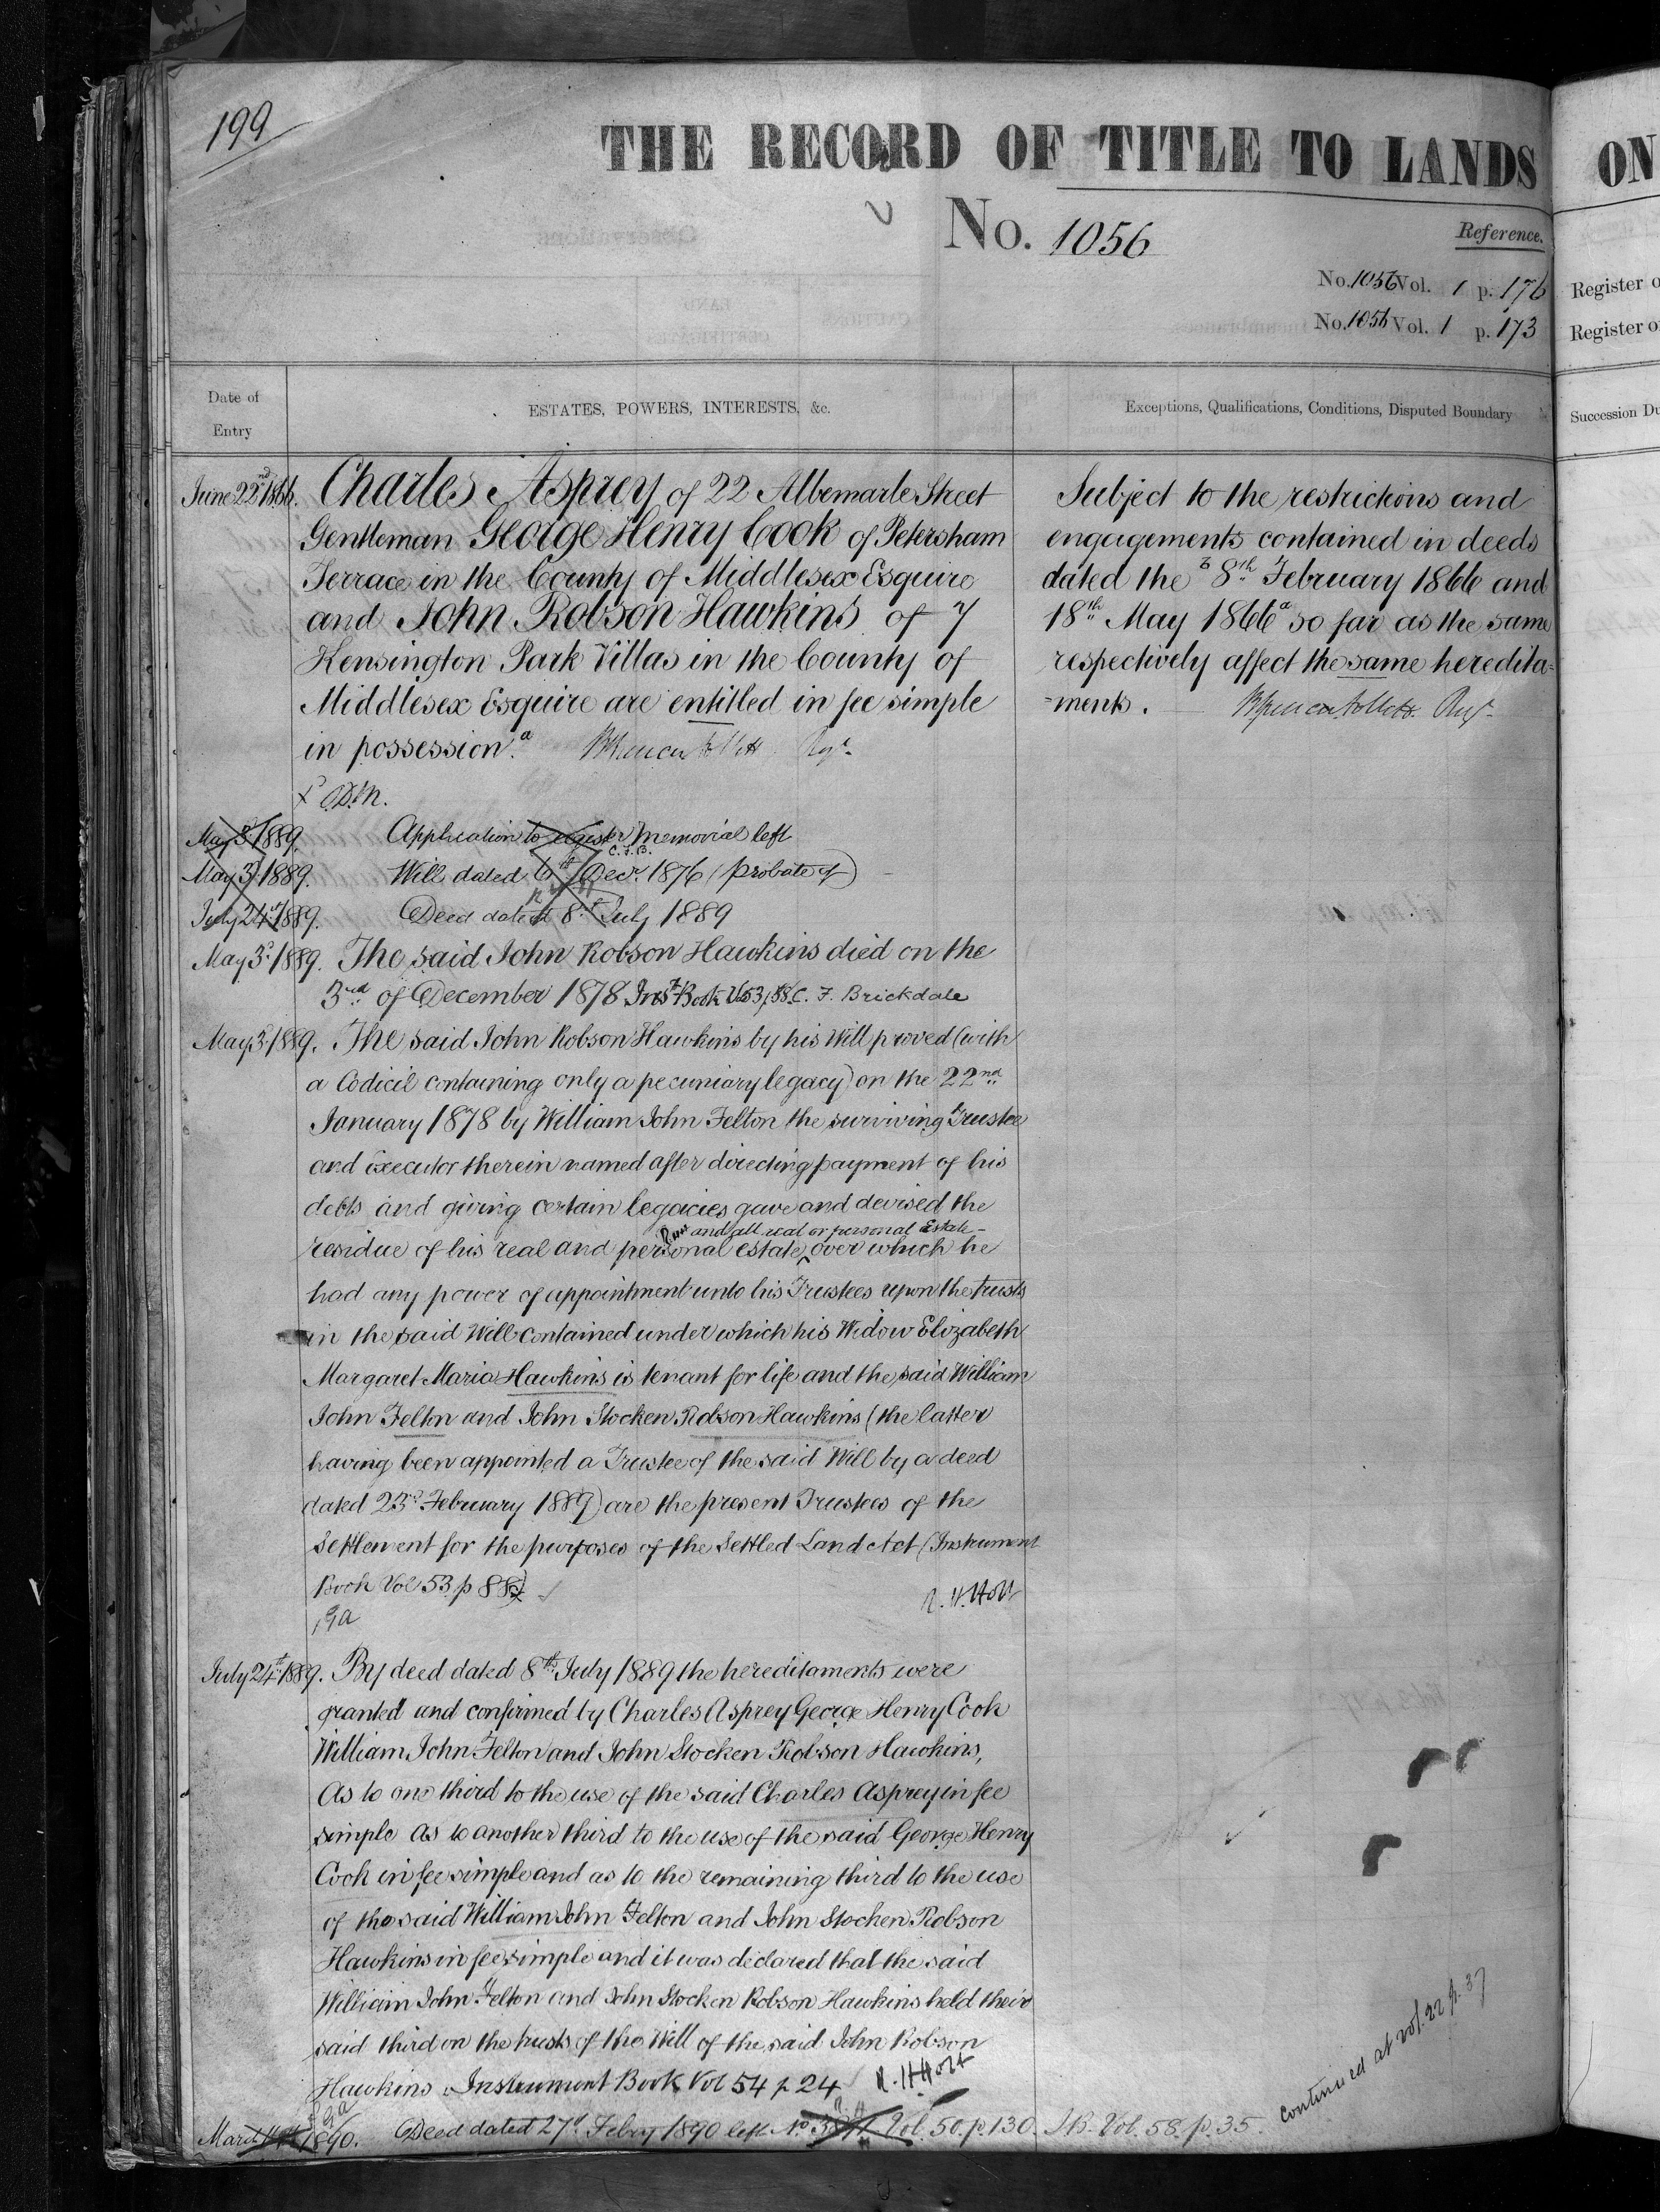 199
THE RECORD OF TITLE TO LANDS
ON
No. 1056
Reference.
No. 1056 Vol. 1 p. 176
No. 1056 Vol. 1 p. 173
Register o
Register o
Date of
Entry
ESTATES, POWERS, INTERESTS, &c.
Exceptions, Qualifications, Conditions, Disputed Boundary
Succession Du
June 22nd 1866. Charles Asprey of 22 Albemarle Street
Gentleman George Henry Cook of Petersham
Terrace in the County of Middlesex Esquire
and John Robson Hawkins of 7
Kensington Park Villas in the County of
Middlesex Esquire are entitled in fee simple
in possession.a
Subject to the restrictions and
engagements contained in deeds
dated the 8th February 1866 and
18th May 1866 a so far as the same
respectively affect the same heredita=
=ments.
May 3d 1889. Application to register Memorial left
C.F.B.
May 3d 1889. Will dated 6th Decr. 1876 (probate of)
July 24th 1889. Deed dated 8th July 1889
May 3d 1889. The said John Robson Hawkins died on the
3rd of December 1878 Inst Book V. 53 p. 88. C. F. Brickdale
May 3d 1889. The said John Robson Hawkins by his Will proved (with
a Codicil containing only a pecuniary legacy) on the 22nd
January 1878 by William John Felton the surviving Trustee
and Executor therein named after directing payment of his
debts and giving certain legacies gave and devised the
and all real or personal Estate
residue of his real and personal estate over which he
had any power of appointment unto his Trustees upon the trusts
in the said Will contained under which his Widow Elizabeth
Margaret Maria Hawkins is tenant for life and the said William
John Felton and John Stocken Robson Hawkins (the latter
having been appointed a Trustee of the said Will by a deed
dated 23rd February 1889) are the present Trustees of the
Settlement for the purposes of the Settled Land Act (Instrument
Book Vol 53 p 88) R. H. Holt
July 24th 1889. By deed dated 8th July 1889 the hereditaments were
granted and confirmed by Charles Asprey George Henry Cook
William John Felton and John Stocken Robson Hawkins,
As to one third to the use of the said Charles Asprey in fee
simple As to another third to the use of the said George Henry
Cook in fee simple and as to the remaining third to the use
of the said William John Felton and John Stocken Robson
Hawkins in fee simple and it was declared that the said
William John Felton and John Stocken Robson Hawkins held their
said third on the trusts of the Will of the said John Robson
Hawkins. Instrument Book Vol 54 p 24 R. H. Holt
March 1890. Deed dated 27th Febry 1890 left Vol. 50. p. 130. I.B. Vol. 58. p. 35.
continued at vol. 22 p. 37